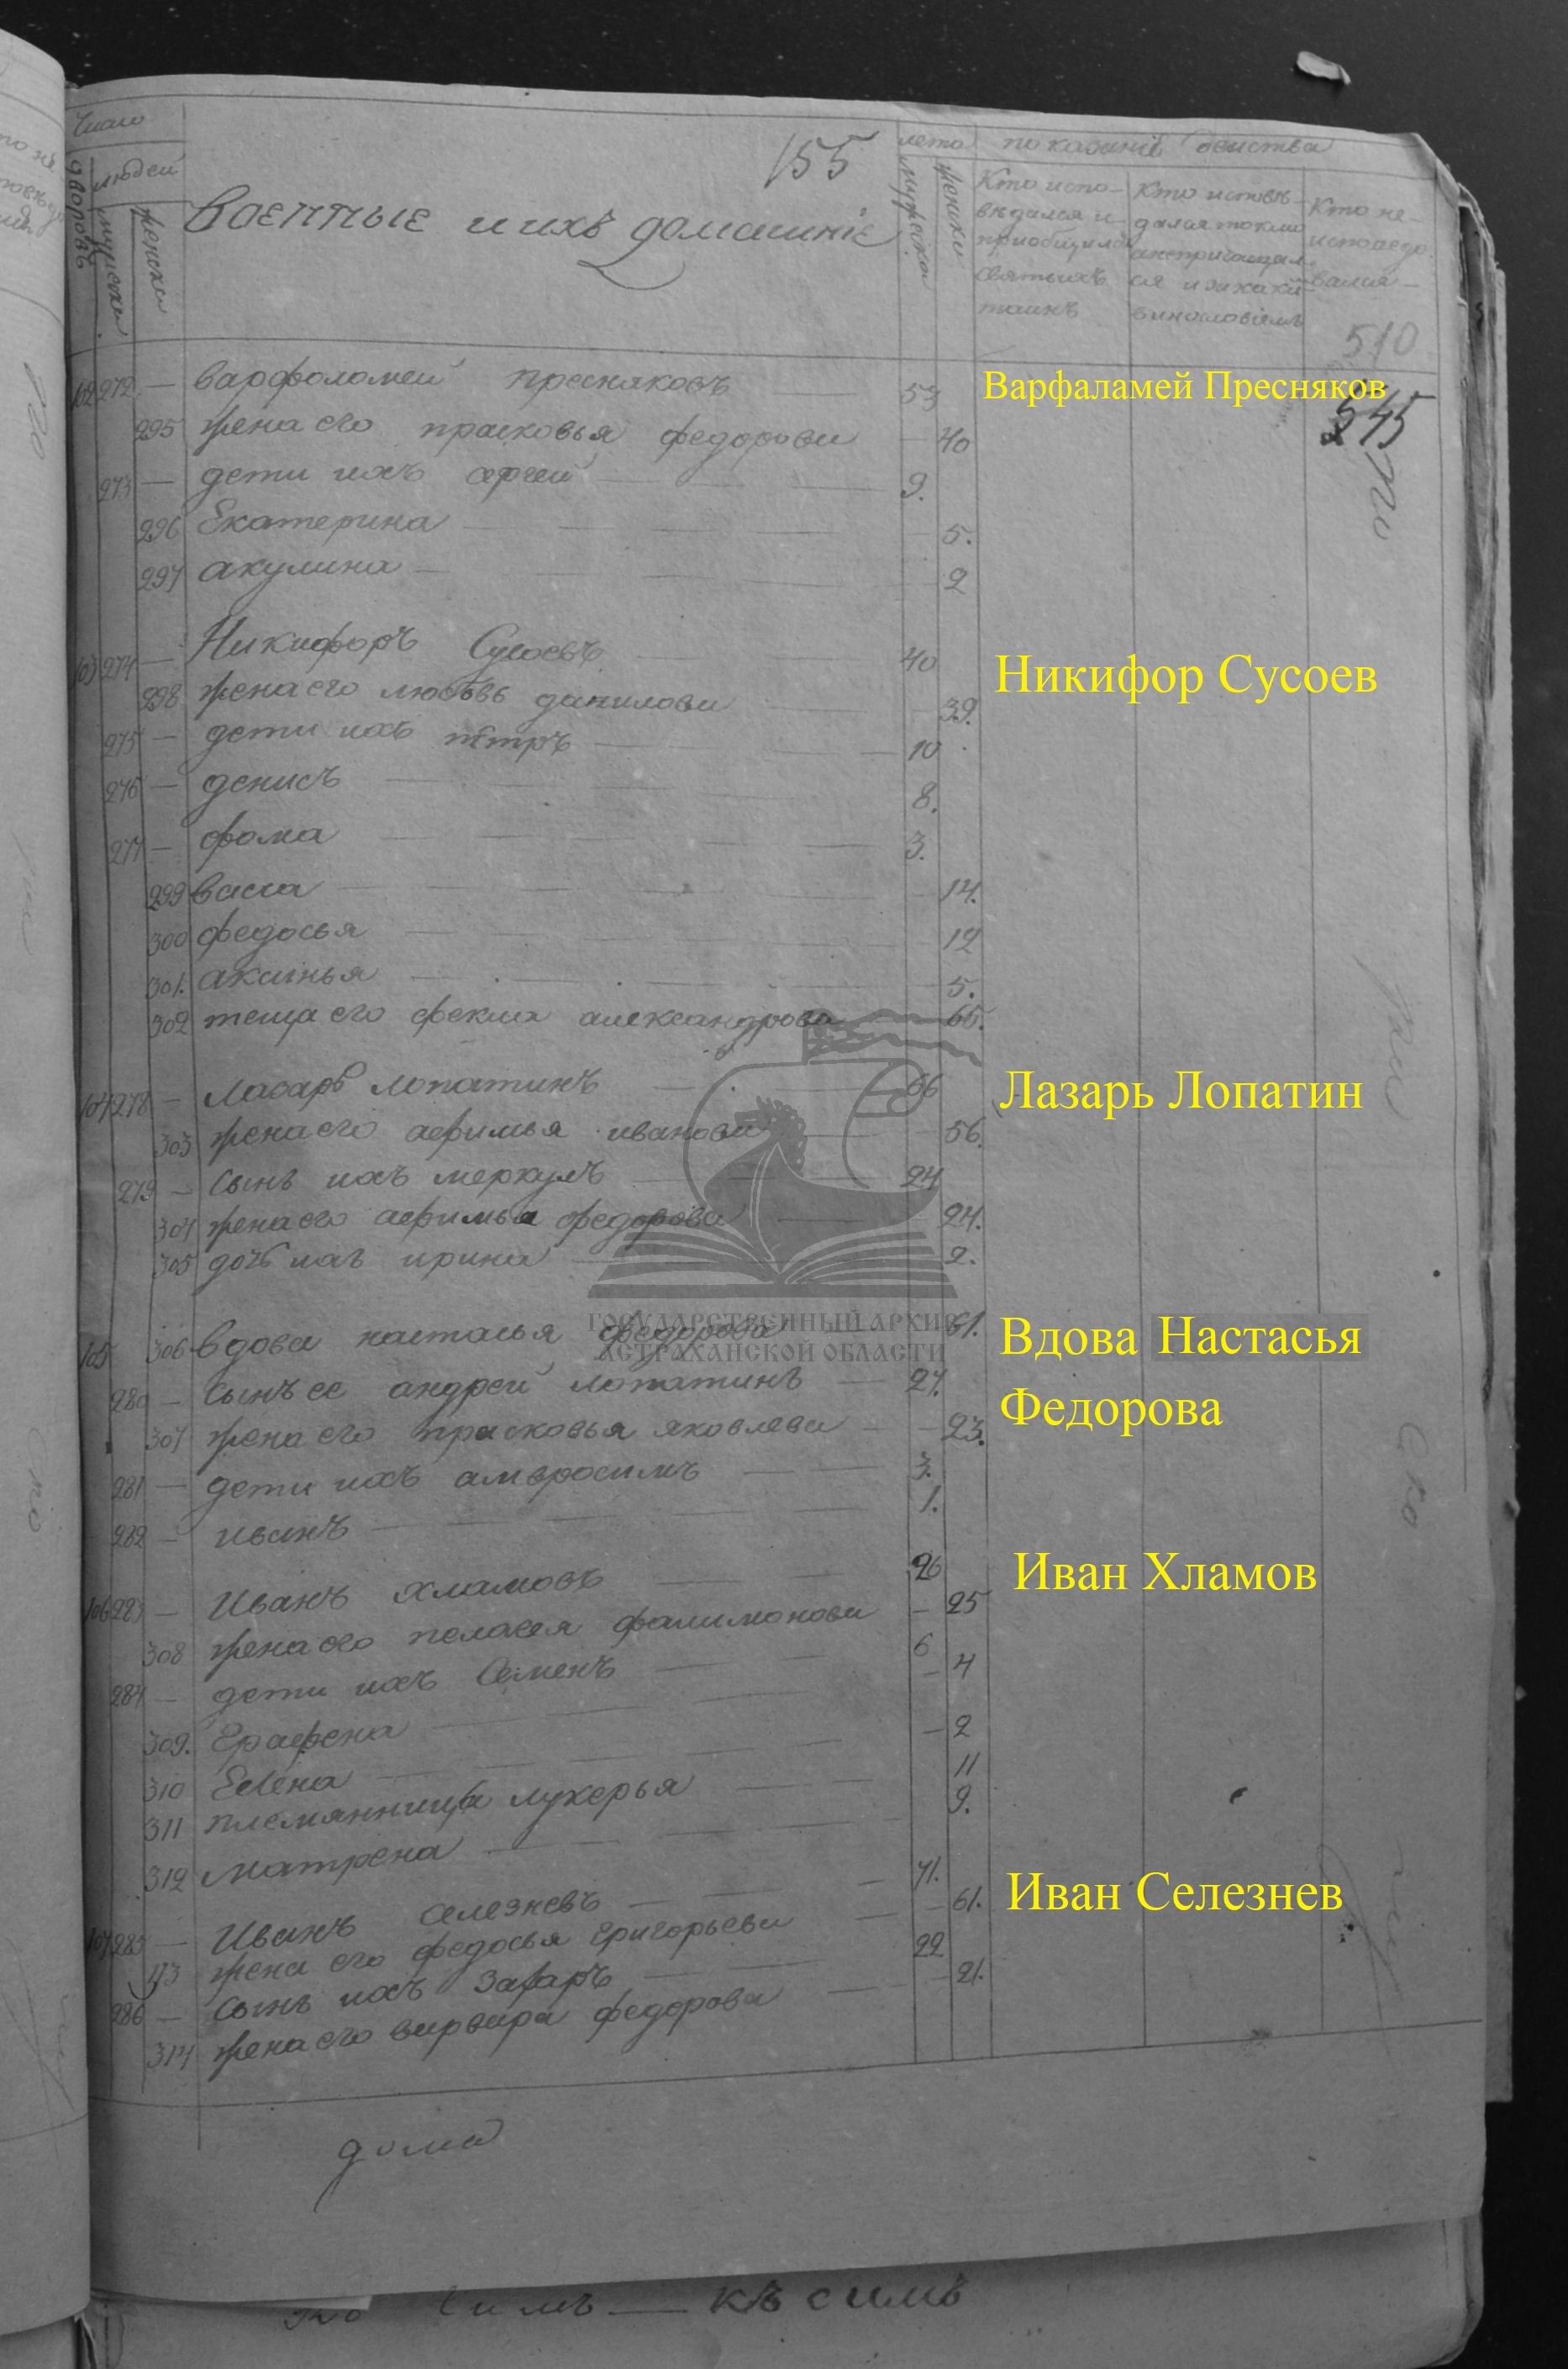 число
лета
показаніе действа
155
дворовъ
людей
мужска
женска
Военные и ихъ домашніе
мужска
женска
Кто испо-
ведался и
приобщился
святыхъ
таинъ
Кто исповѣ-
дался токмо
анепричащал
ся и закаки
винословіемъ
Кто не-
исповедо
вался
510
545
102 272 — варфоломей пресняковъ 53
Варфаламей Пресняков
295 жена его прасковья федорова 40
273 — дети ихъ сергей 9.
296 Екатерина 5.
297 акулина 2
103 274 — Никифоръ Сусоевъ 40
Никифор Сусоев
298 жена его любовь данилова 39.
275 — дети ихъ петръ 10
276 — денисъ 8.
277 — фома 3.
299 васса 14.
300 федосья 12
301. аксинья 5.
302 теща его фекла александрова 65.
104 278 — Лазарь лопатинъ 66
Лазарь Лопатин
303 жена его афимья иванова 56.
279 — сынъ ихъ меркулъ 24
304 жена его афимья федорова 24.
305 дочь ихъ ирина 2.
ГОСУДАРСТВЕННЫЙ АРХИВ
АСТРАХАНСКОЙ ОБЛАСТИ
105 306 вдова настасья федорова 61.
Вдова Настасья
Федорова
280 — сынъ ее андрей лопатинъ 27.
307 жена его прасковья яковлева 23.
281 — дети ихъ амвросимъ 3.
282 — иванъ 1.
106 283 — Иванъ хламовъ 26
Иван Хламов
308 жена его пелагея фалимонова 25
284 — дети ихъ Семенъ 6
309. Еграфена 4
310 Елена 2
311 племянница лукерья 11
312 матрена 9.
107 285 — Иванъ селезневъ 71.
Иван Селезнев
313 жена его федосья григорьева 61.
286 — сынъ ихъ захаръ 22
314 жена его варвара федорова 21.
дома
къ симъ